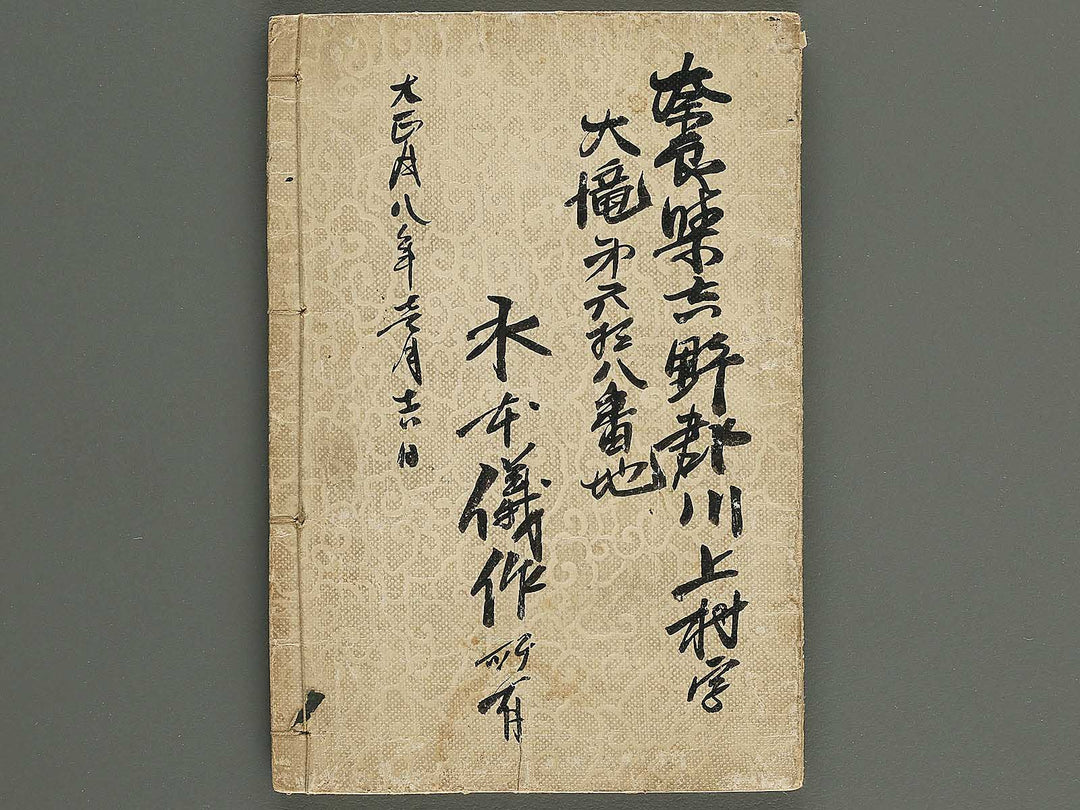 奈良県吉野郡川上村字
大滝第六拾八番地
水本儀作所有
大正八年壱月十六日